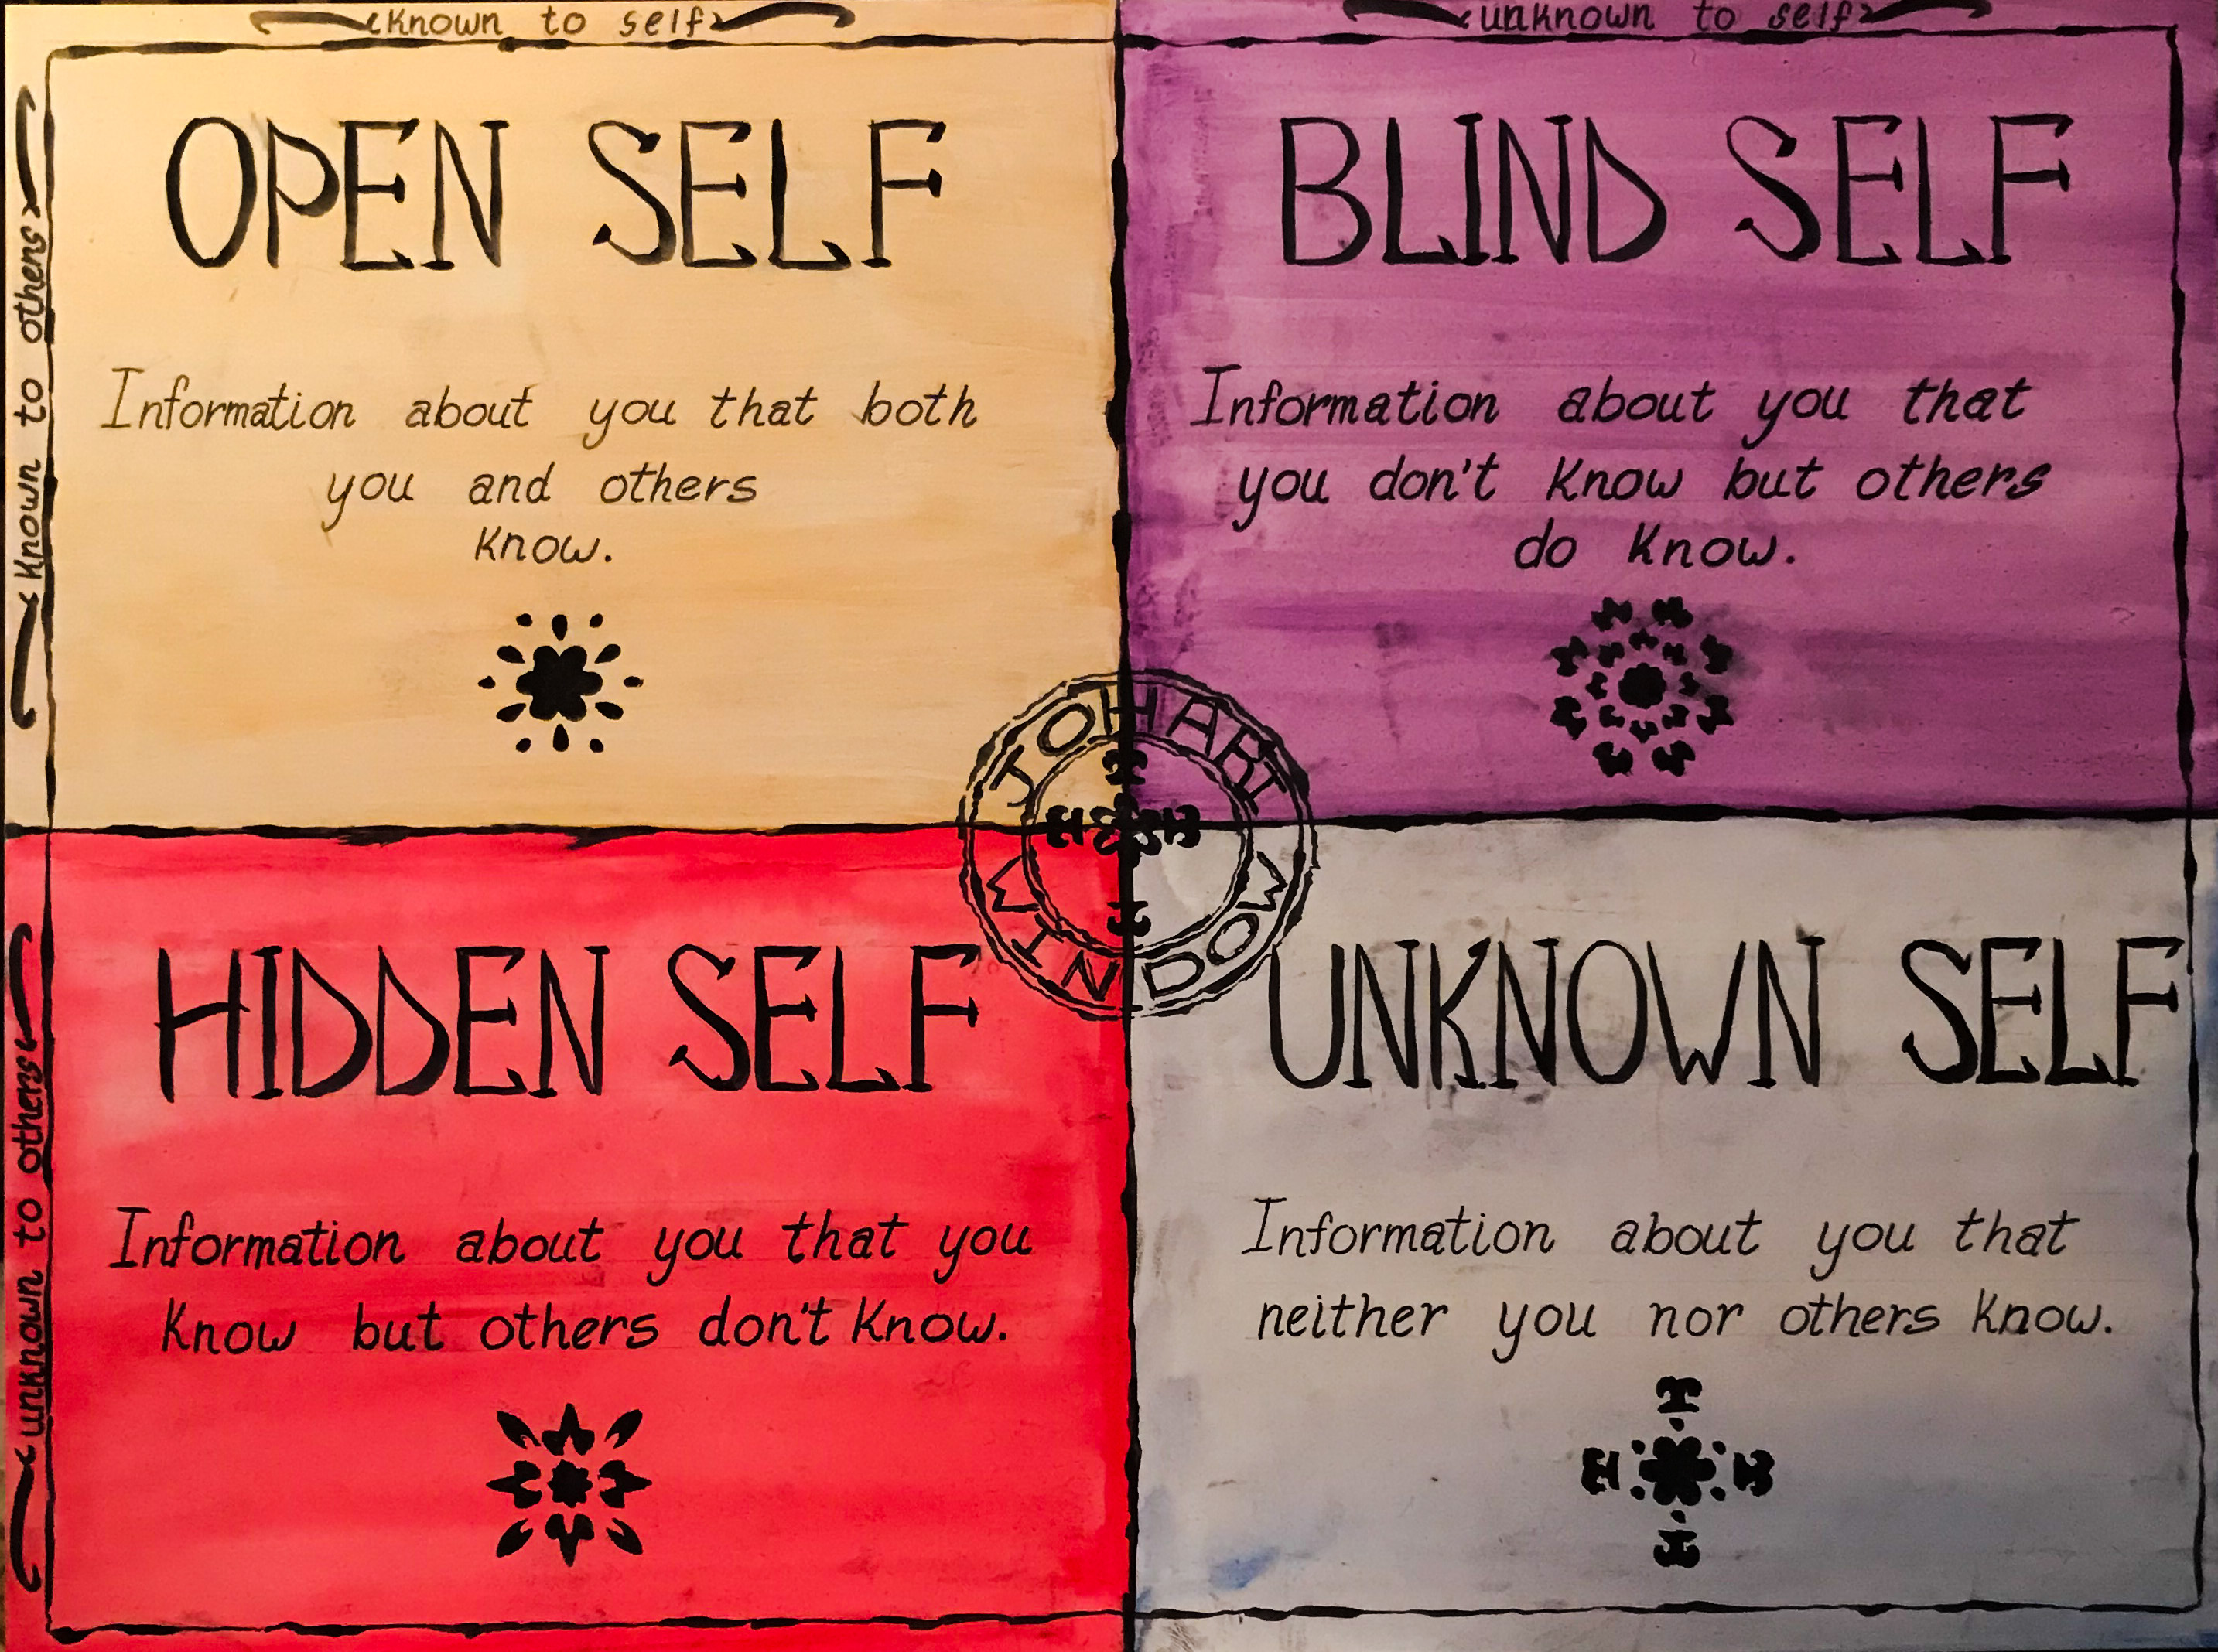 known to self
unknown to self
known to others
OPEN SELF
Information about you that both
you and others
know.
BLIND SELF
Information about you that
you don't know but others
do know.
JOHARI
WINDOW
unknown to others
HIDDEN SELF
Information about you that you
know but others don't know.
UNKNOWN SELF
Information about you that
neither you nor others know.